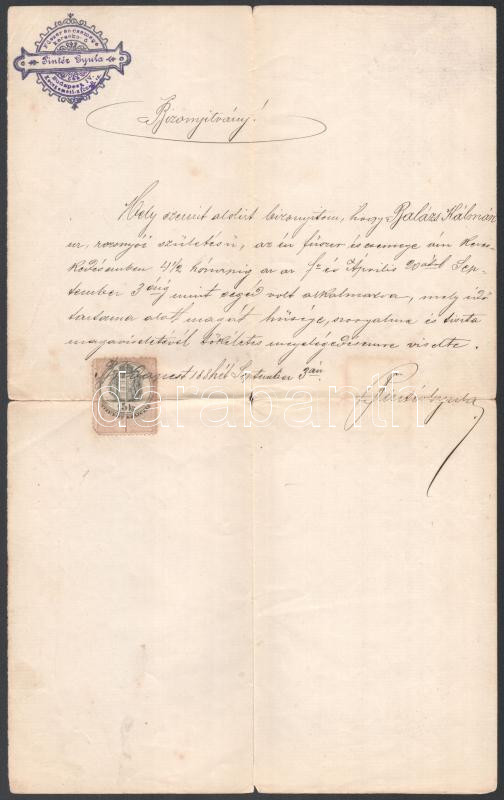 Fűszer és csemege
Pintér Gyula
Budapest, IV.
Bizonyitvány!
Mely szerint alólirt bizonyitom, hogy Balázs Kálmán
úr, rozsnyói születésű, az én fűszer és csemege áru keres-
kedésemben 4 1/2 hónapig az az f. év Április 20ától Sep-
tember 3áig mint segéd volt alkalmazva, mely idő
tartama alatt magát hűsége, szorgalma és tiszta
magaviseletével tökéletes megelégedésemre viselte.
Budapest 188 September 3án
Pintér Gyula
15 kr
darabanth